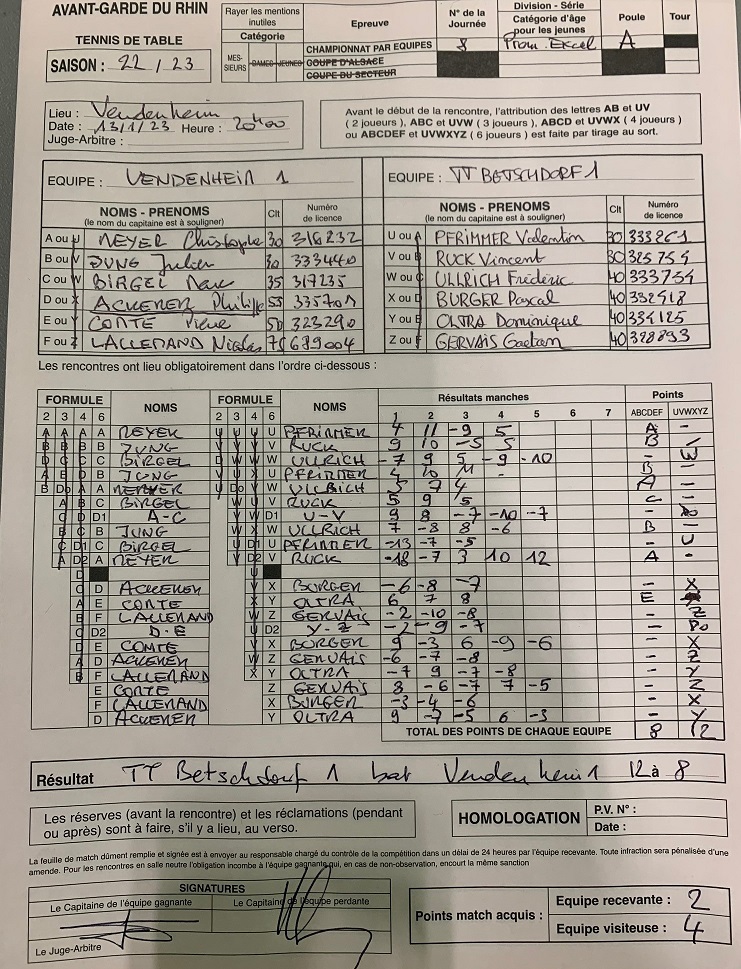 AVANT-GARDE DU RHIN
TENNIS DE TABLE
SAISON : 22 / 23
Rayer les mentions inutiles
Catégorie
MES-SIEURS DAMES JEUNES
Epreuve
CHAMPIONNAT PAR EQUIPES
COUPE D'ALSACE
COUPE DU SECTEUR
N° de la Journée
8
Division - Série
Catégorie d'âge pour les jeunes
Prom. Excel
Poule
A
Tour
Lieu : Vendenheim
Date : 13/1/23 Heure : 20h00
Juge-Arbitre :
Avant le début de la rencontre, l'attribution des lettres AB et UV
( 2 joueurs ), ABC et UVW ( 3 joueurs ), ABCD et UVWX ( 4 joueurs )
ou ABCDEF et UVWXYZ ( 6 joueurs ) est faite par tirage au sort.
EQUIPE : VENDENHEIM 1
NOMS - PRENOMS (le nom du capitaine est à souligner) Clt Numéro de licence
A ou U MEYER Christophe 30 316232
B ou V JUNG Julien 30 333440
C ou W BIRGEL Marc 35 317235
D ou X ACKERER Philippe 55
E ou Y COMTE Pierre 50 323290
F ou Z LALLEMAND Nicolas 75 689004
EQUIPE : TT BETSCHDORF 1
NOMS - PRENOMS (le nom du capitaine est à souligner) Clt Numéro de licence
U ou A PFRIMMER Valentin 30 333861
V ou B RUCK Vincent 30 325754
W ou C ULLRICH Frédéric 40 333754
X ou D BURGER Pascal 40 332418
Y ou E OLTRA Dominique 40 334125
Z ou F GERVAIS Gaetan 40 328893
Les rencontres ont lieu obligatoirement dans l'ordre ci-dessous :
FORMULE NOMS FORMULE NOMS Résultats manches Points
2 3 4 6 2 3 4 6 1 2 3 4 5 6 7 ABCDEF UVWXYZ
A MEYER U PFRIMMER 4 11 -9 5 A -
B JUNG V RUCK 9 10 -5 5 B -
C BIRGEL W ULLRICH -7 9 5 -9 -10 - W
B JUNG U PFRIMMER 4 10 11 B -
A MEYER W ULLRICH 5 7 4 A -
C BIRGEL V RUCK 5 9 5 C -
D1 A-C D1 U-V 9 8 -7 -10 -7 -
B JUNG W ULLRICH 7 -8 8 -6 B -
C BIRGEL U PFRIMMER -13 -7 -5 - U
A MEYER V RUCK -18 -7 3 10 12 A -
D ACKERER X BURGER -6 -8 -7 - X
E COMTE Y OLTRA 6 7 8 E
F LALLEMAND Z GERVAIS -2 -10 -8 - Z
D2 D-E D2 Y-Z -2 -9 -7 -
E COMTE X BURGER 9 -3 6 -9 -6 - X
D ACKERER Z GERVAIS -6 -7 -8 - Z
F LALLEMAND Y OLTRA -7 9 -7 -8 - Y
E COMTE Z GERVAIS 8 -6 -7 7 -5 - Z
F LALLEMAND X BURGER -3 -4 -6 - X
D ACKERER Y OLTRA 9 -7 -5 6 -3 - Y
TOTAL DES POINTS DE CHAQUE EQUIPE 8 12
Résultat TT Betschdorf 1 bat Vendenheim 1 12 à 8
Les réserves (avant la rencontre) et les réclamations (pendant
ou après) sont à faire, s'il y a lieu, au verso.
HOMOLOGATION
P.V. N° :
Date :
La feuille de match dûment remplie et signée est à envoyer au responsable chargé du contrôle de la compétition dans un délai de 24 heures par l'équipe recevante. Toute infraction sera pénalisée d'une
amende. Pour les rencontres en salle neutre l'obligation incombe à l'équipe gagnante qui, en cas de non-observation, encourt la même sanction
SIGNATURES
Le Capitaine de l'équipe gagnante
Le Capitaine de l'équipe perdante
Le Juge-Arbitre
Points match acquis :
Equipe recevante : 2
Equipe visiteuse : 4